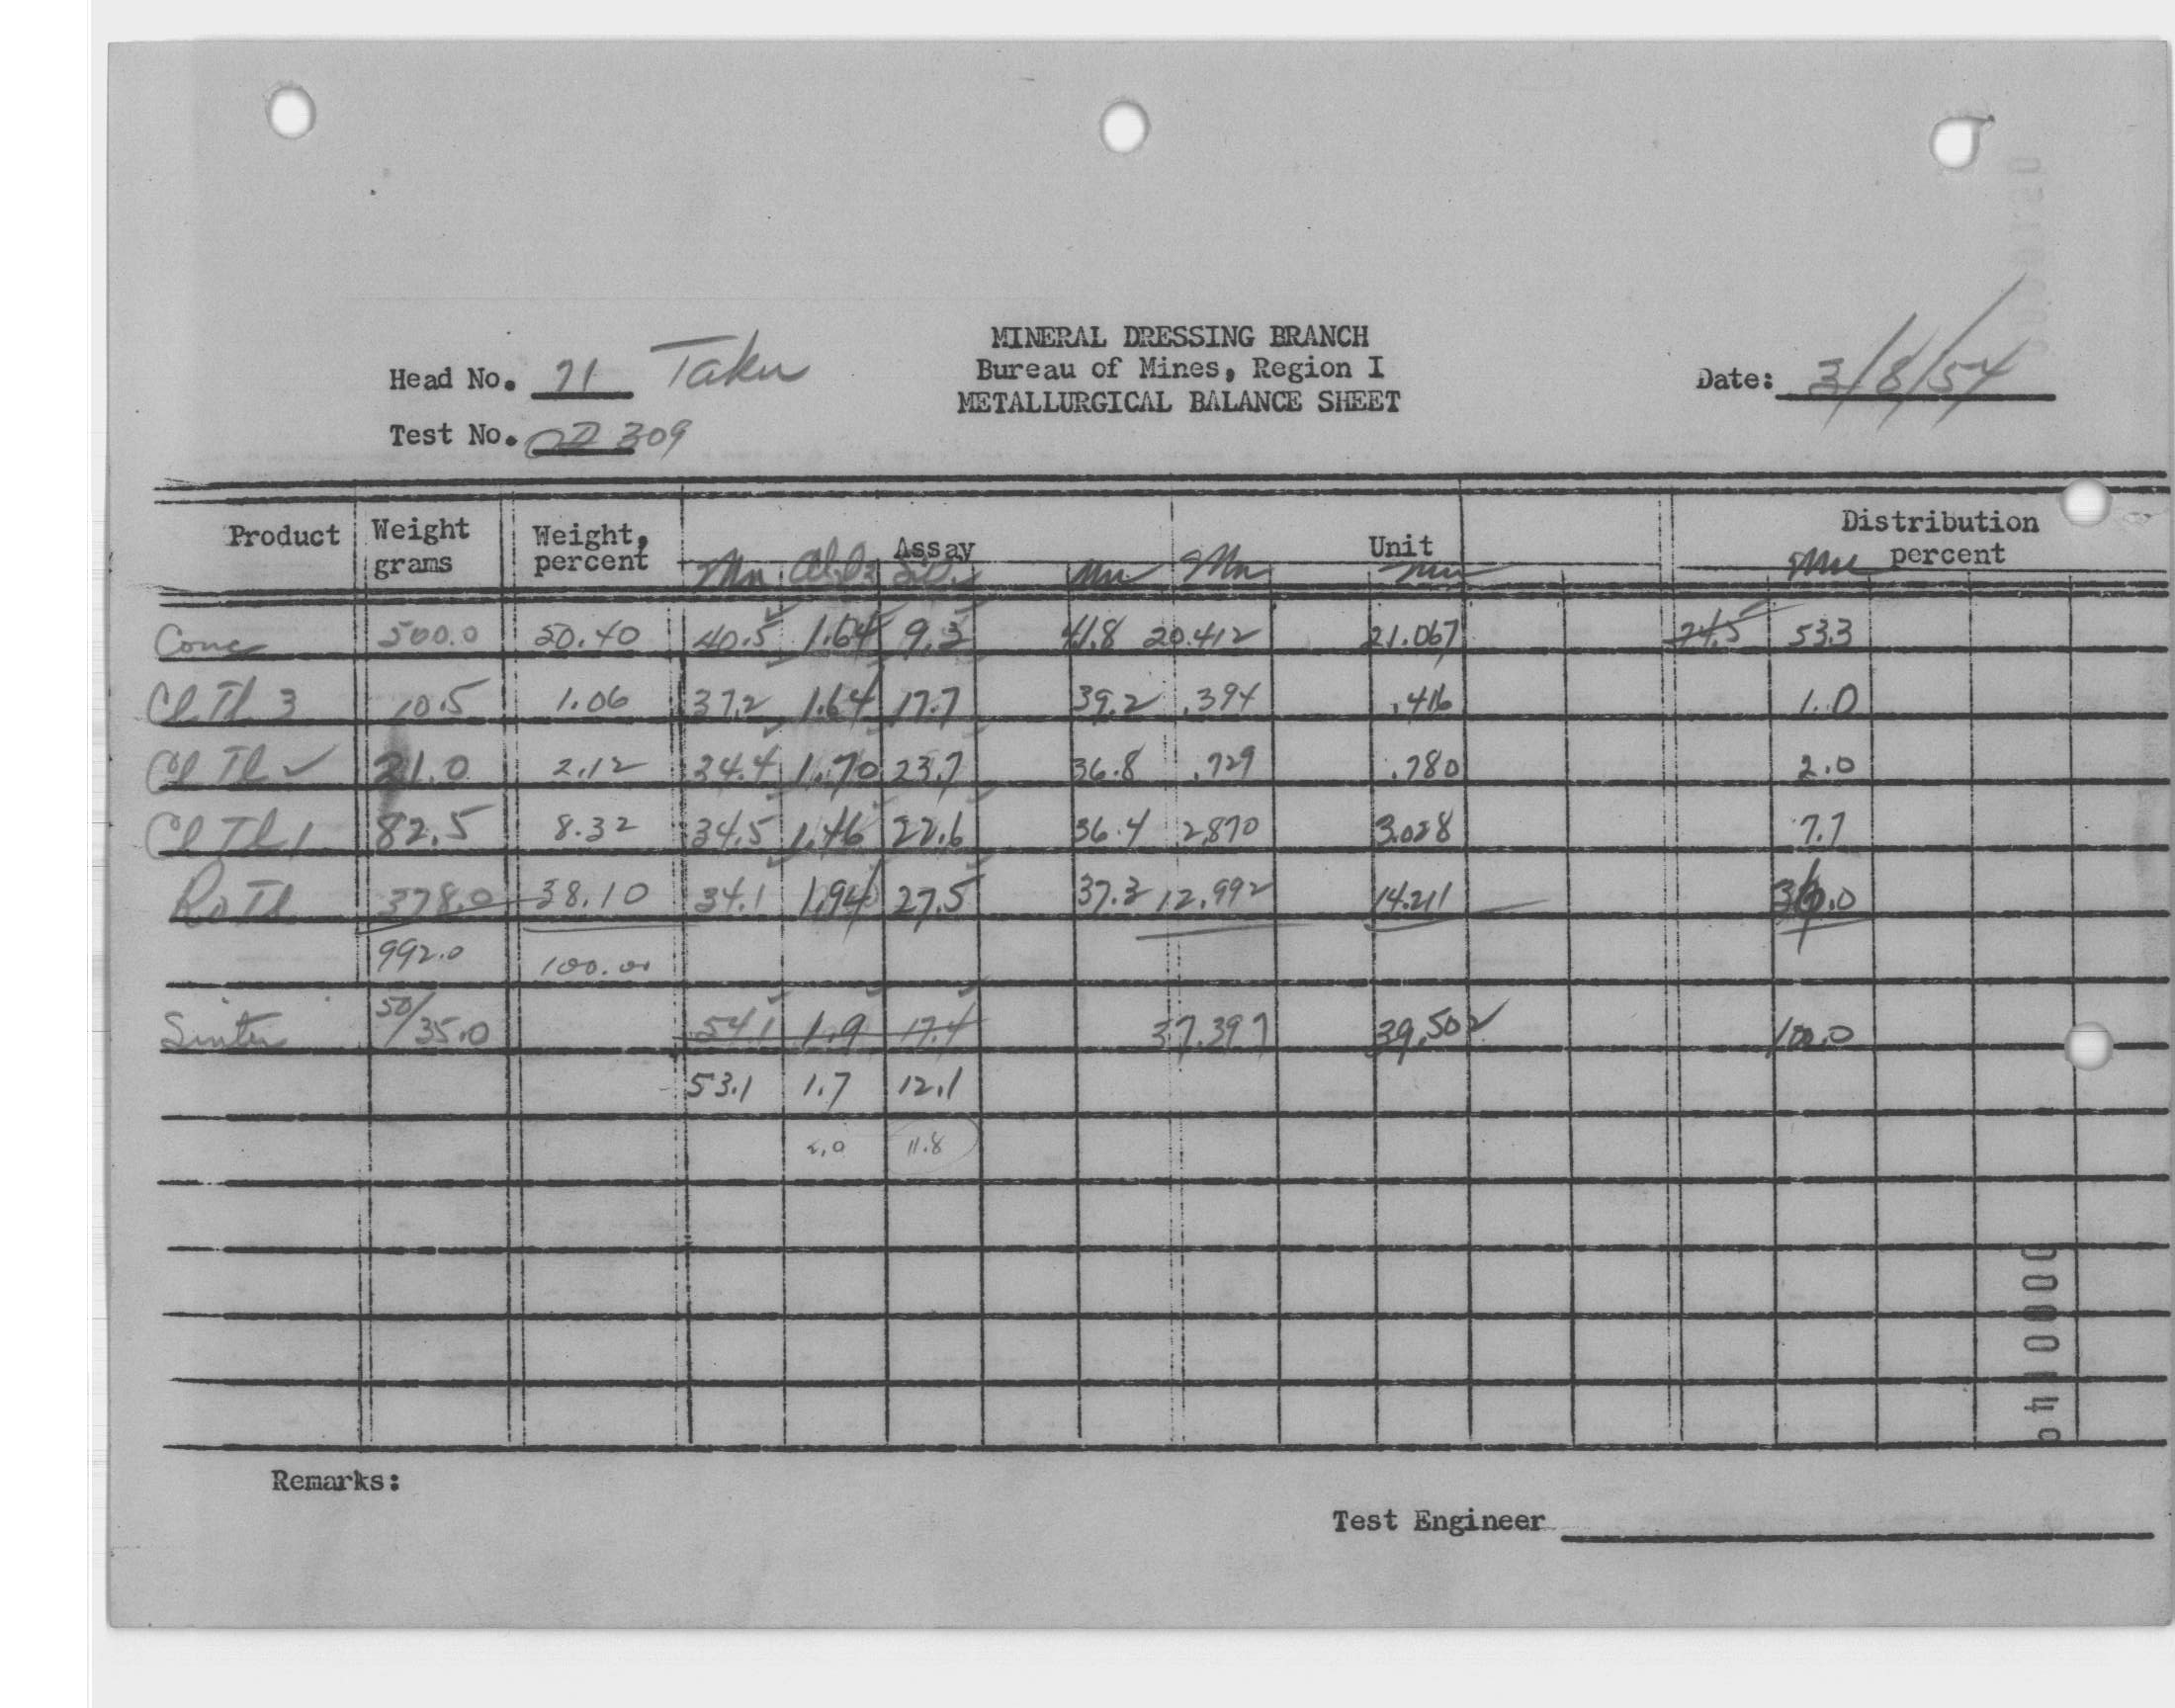 MINERAL DRESSING BRANCH
Head No. 71 Taku Bureau of Mines, Region I Date: 3/8/54
METALLURGICAL BALANCE SHEET
Test No. 309
Product Weight grams Weight, percent Assay Unit Distribution percent
Mn Al2O3 SiO2 Mn Mn Mn Mn
Conc 500.0 50.40 40.5 1.64 9.3 41.8 20.412 21.067 74.5 53.3
Cl Tl 3 10.5 1.06 37.2 1.64 17.7 39.2 .394 .416 1.0
Cl Tl 2 21.0 2.12 34.4 1.70 23.7 36.8 .729 .780 2.0
Cl Tl 1 82.5 8.32 34.5 1.46 22.6 36.4 2.870 3.028 7.7
Ro Tl 378.0 38.10 34.1 1.94 27.5 37.3 12.992 14.211 36.0
992.0 100.00
Sinter 50/35.0 54.1 1.9 17.4 37.397 39.502 100.0
53.1 1.7 12.1
2.0 11.8
Remarks:
Test Engineer